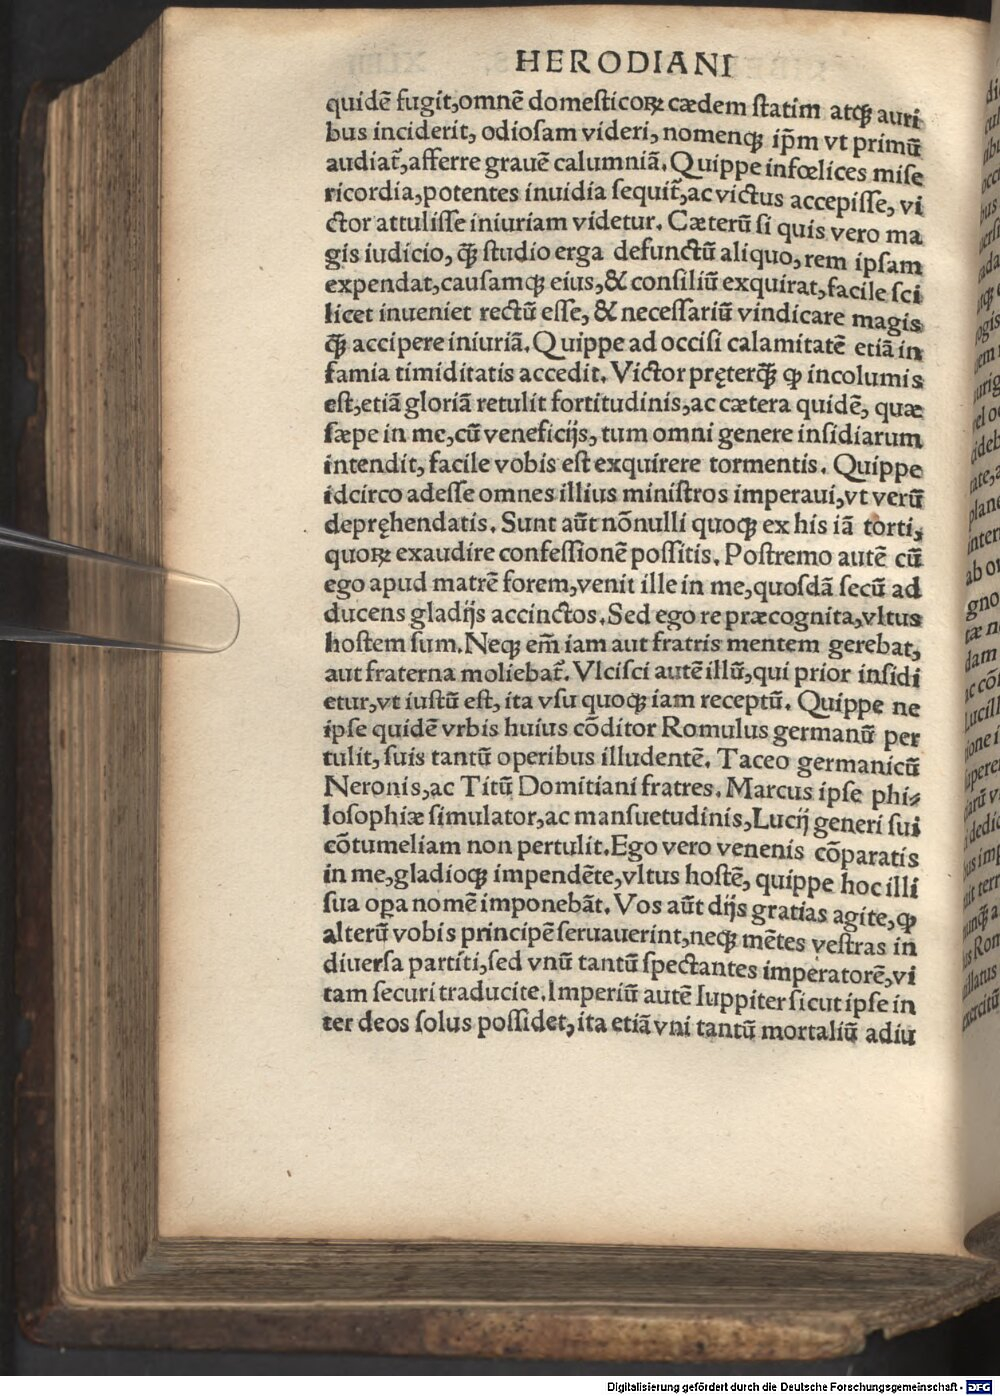 HERODIANI
quidē fugit,omnē domesticoꝝ cædem statim atqꝫ auri
bus inciderit, odiosam videri, nomenqꝫ ip̄m vt primū
audiat᷑,afferre grauē calumniā. Quippe infœlices mise
ricordia,potentes inuidia sequit᷑,ac victus accepisse, vi
ctor attulisse iniuriam videtur. Cæterū si quis vero ma
gis iudicio, q̄ꝫ studio erga defunctū aliquo, rem ipsam
expendat,causamqꝫ eius,& consiliū exquirat,facile sci
licet inueniet rectū esse, & necessariū vindicare magis
q̄ꝫ accipere iniuriā. Quippe ad occisi calamitatē etiā in
famia timiditatis accedit. Victor pręterq̄ꝫ ꝙ incolumis
est,etiā gloriā retulit fortitudinis,ac cætera quidē, quæ
sæpe in me,cū veneficijs, tum omni genere insidiarum
intendit, facile vobis est exquirere tormentis. Quippe
idcirco adesse omnes illius ministros imperaui,vt verū
depręhendatis. Sunt aūt nōnulli quoqꝫ ex his iā torti,
quoꝝ exaudire confessionē possitis. Postremo autē cū
ego apud matrē forem,venit ille in me,quosdā secū ad
ducens gladijs accinctos. Sed ego re præcognita,vltus
hostem sum. Neqꝫ em̄ iam aut fratris mentem gerebat,
aut fraterna moliebat᷑. Vlcisci autē illū,qui prior insidi
etur,vt iustū est, ita vsu quoqꝫ iam receptū. Quippe ne
ipse quidē vrbis huius cōditor Romulus germanū per
tulit, suis tantū operibus illudentē. Taceo germanicū
Neronis,ac Titū Domitiani fratres. Marcus ipse phi⸗
losophiæ simulator,ac mansuetudinis,Lucij generi sui
cōtumeliam non pertulit. Ego vero venenis cōparatis
in me,gladioqꝫ impendēte,vltus hostē, quippe hoc illi
sua oꝑa nomē imponebāt. Vos aūt dijs gratias agite,ꝙ
alterū vobis principē seruauerint,neqꝫ mētes vestras in
diuersa partiti,sed vnū tantū spectantes imperatorē,vi
tam securi traducite. Imperiū autē Iuppiter sicut ipse in
ter deos solus possidet, ita etiā vni tantū mortaliū adiu
Digitalisierung gefördert durch die Deutsche Forschungsgemeinschaft - DFG